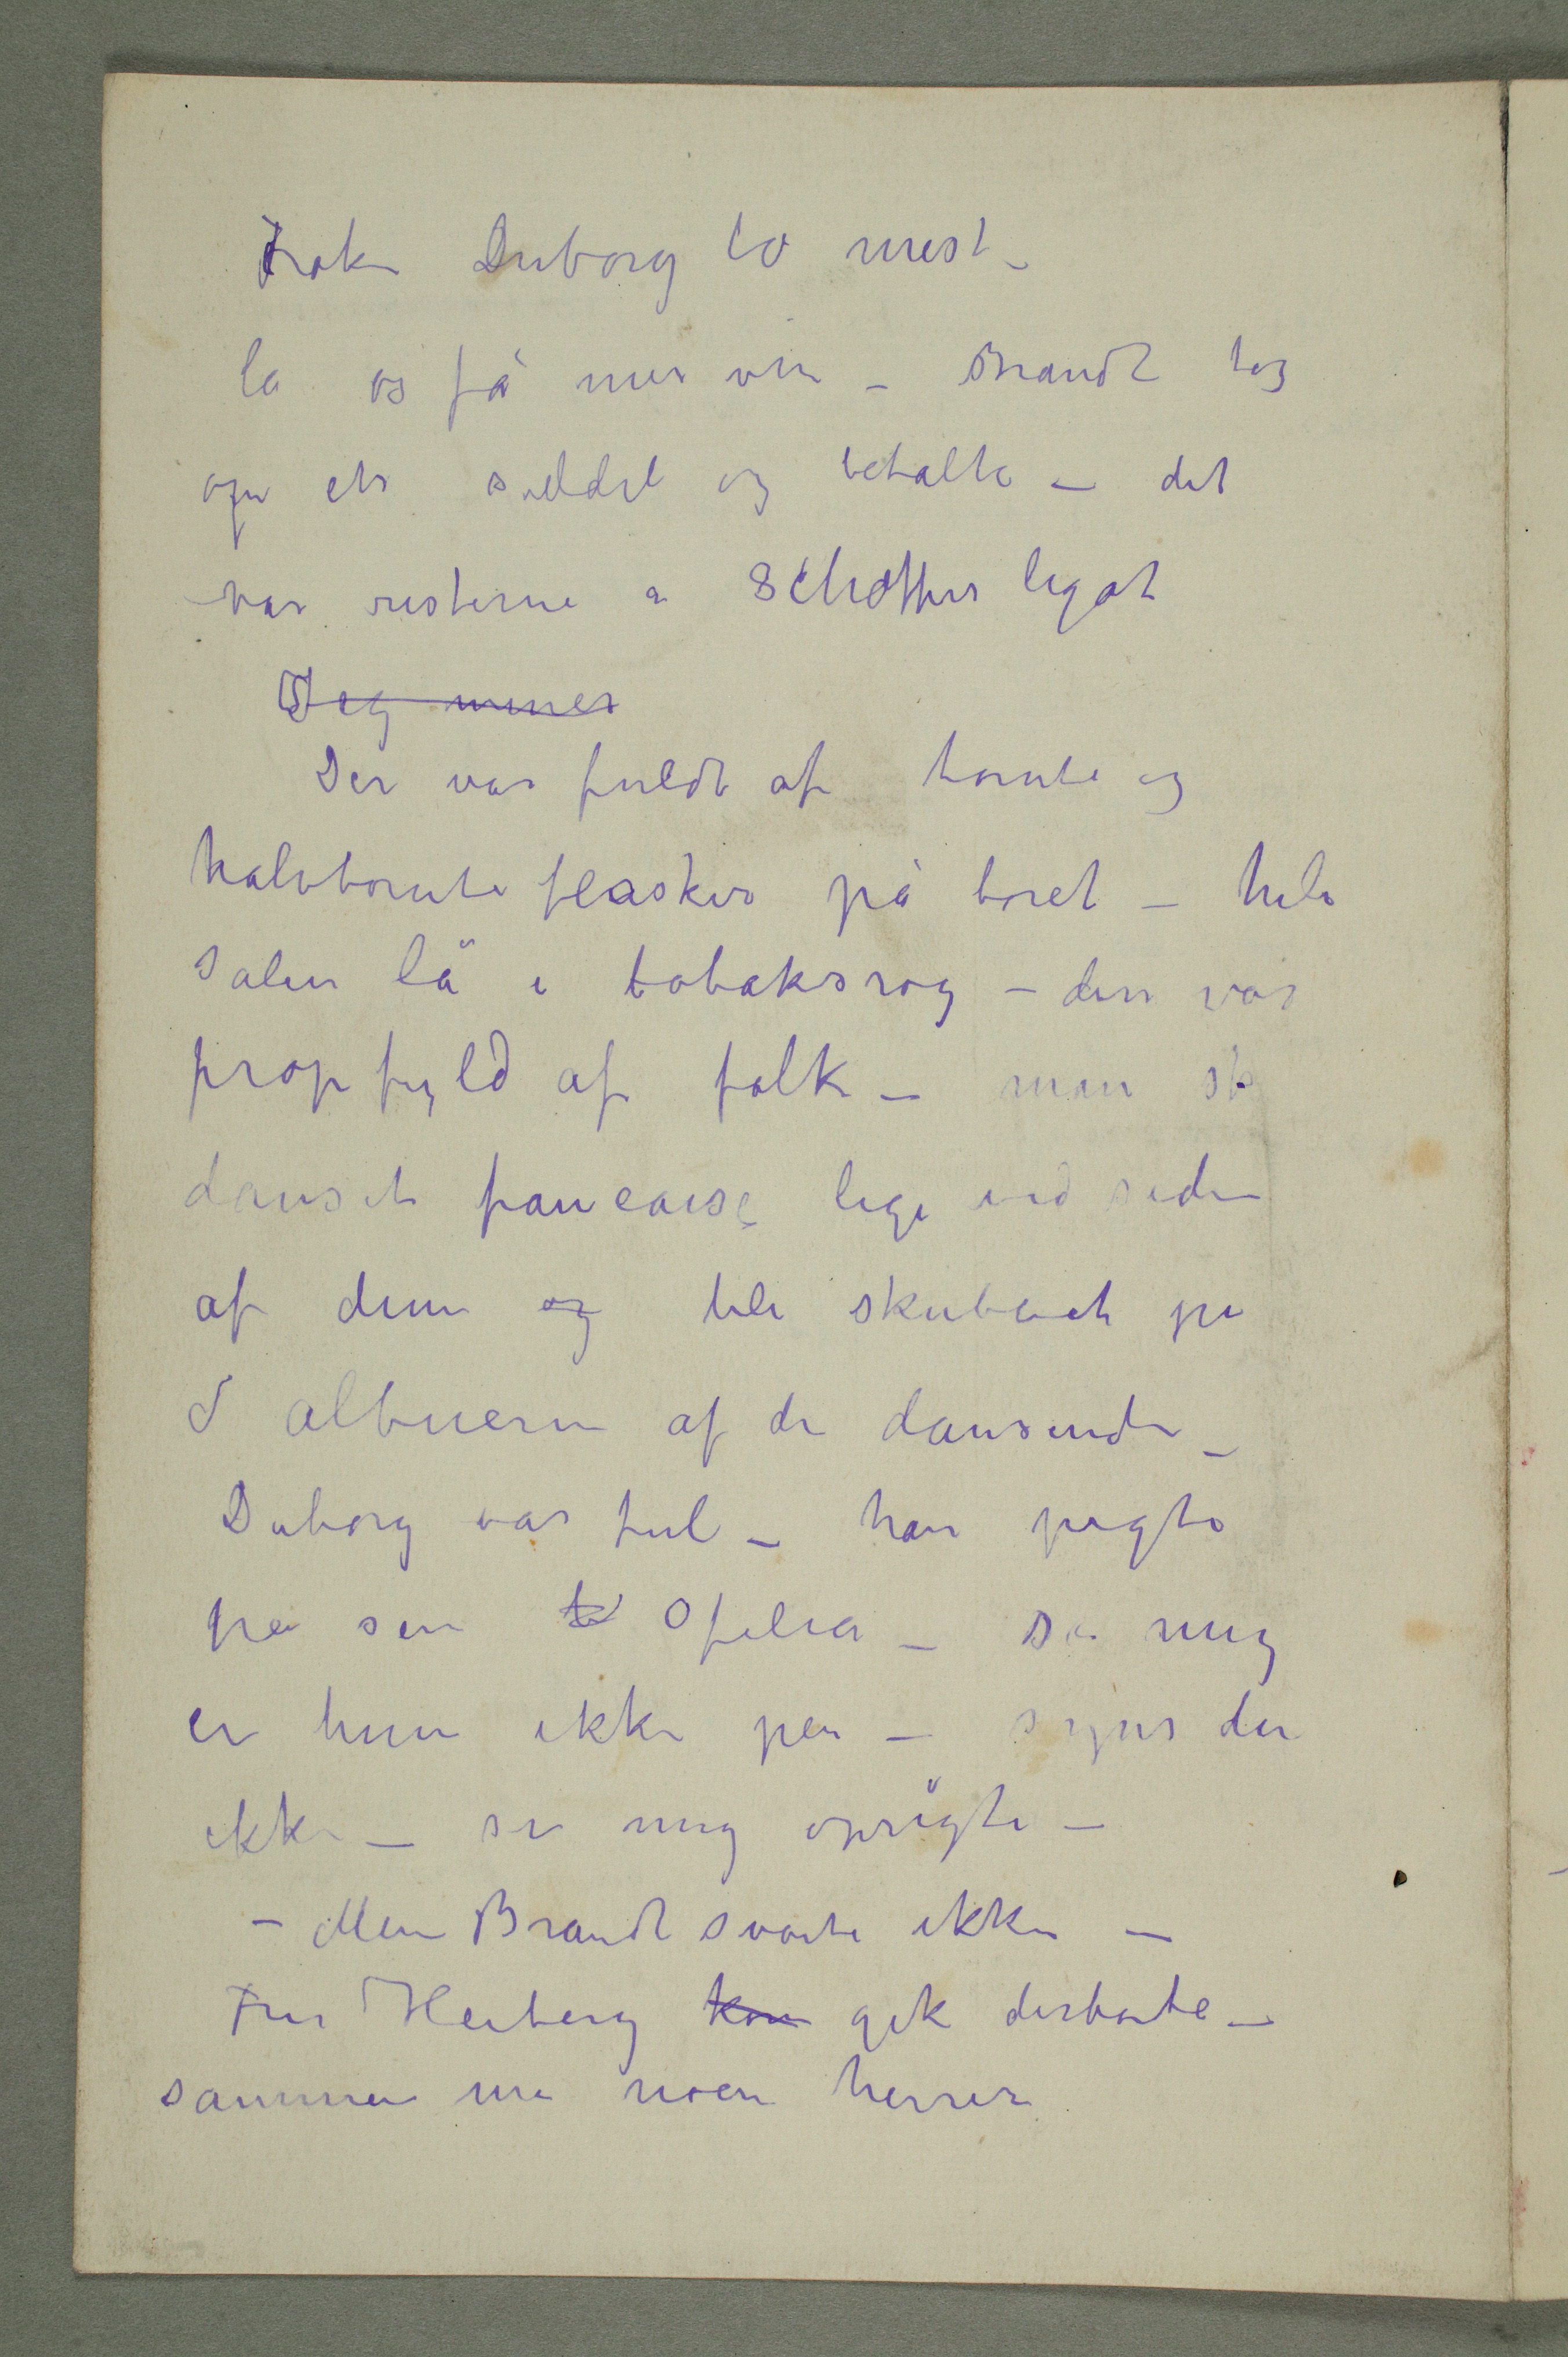 Frøken Duborg lo mest –
la os få mer vin – Brandt tog
op en seddel og betalte – det
var resterne a Schäffers legat
Jeg mener
Der var fuldt af tomte og
halvtomte flasker på boret – hele
salen lå i tobaksrøg – den var
propfyld af folk – man
danset francaise lige ved siden
af dem og ble skubbet på
albuerne af de dansende –
Duborg var ful – han pegte
på sin Ofelia – Sei mig
er hun ikke pen – synes du
ikke – si mig oprigti –
– Men Brandt svarte ikke –
Fru Heiberg kom gik derborte –
sammen me noen herrer